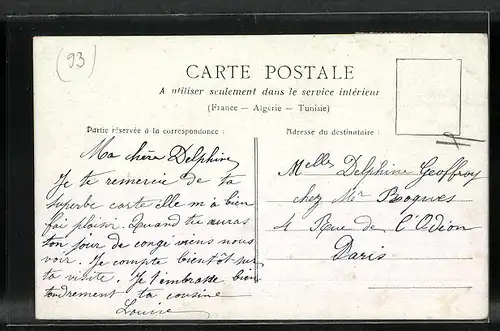 (93)
CARTE POSTALE
A utiliser seulement dans le service intérieur
(France — Algérie — Tunisie)
Partie réservée à la correspondance :
Adresse du destinataire :
Ma chère Delphine
Je te remercie de ta
superbe carte elle m'a bien
fai plaisir. Quand tu auras
ton jour de congé viens nous
voir. Je compte bientôt sur
ta visite. Je t'embrasse bien
tendrement ta cousine
Louise
Melle Delphine Geoffroy
chez Mr Bacques
4 Rue de l'Odéon
Paris